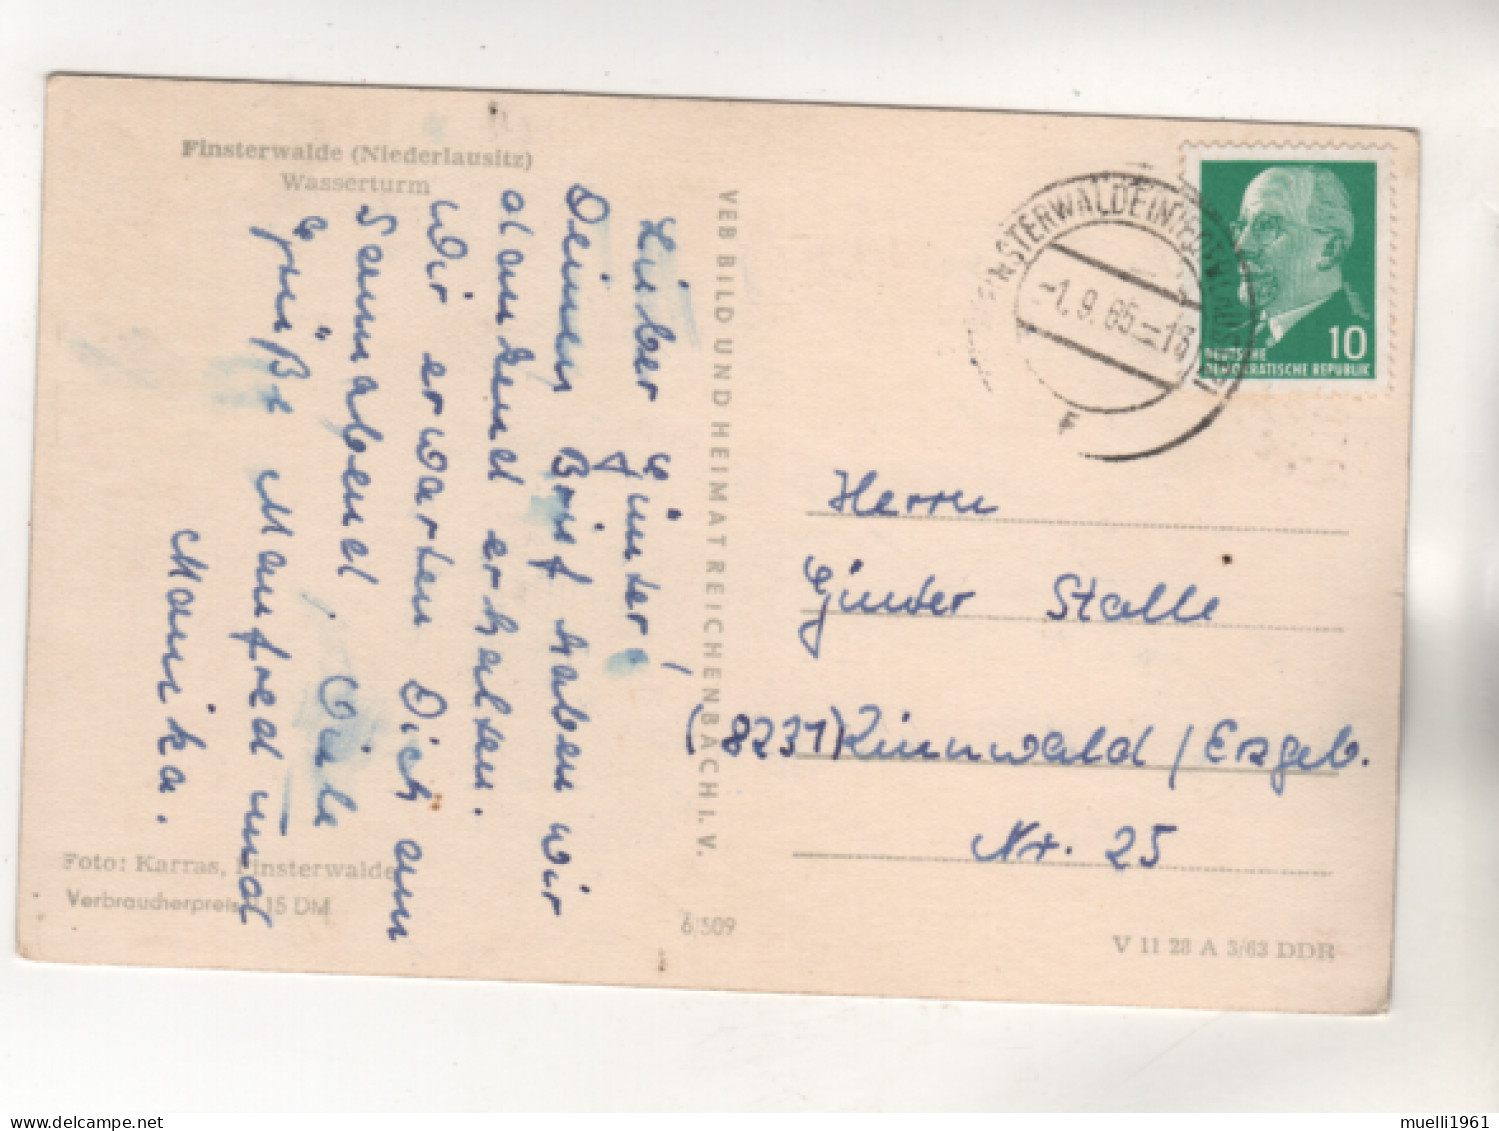 Finsterwalde (Niederlausitz)
Wasserturm
Lieber Günter!
Deinen Brief haben wir
dankend erhalten.
Wir erwarten Dich am
Sonnabend, Viele
Grüße Manfred und
Monika.
Foto: Karras, Finsterwalde
Verbraucherpreis 15 DM
VEB BILD UND HEIMAT REICHENBACH I. V.
6/509
-1.9.65.-18
10
DEUTSCHE
DEMOKRATISCHE REPUBLIK
Herrn
Günter Stelle
(8231) Zinnwald / Erzgeb.
Nr. 25
V 11 28 A 3/63 DDR
muelli1961